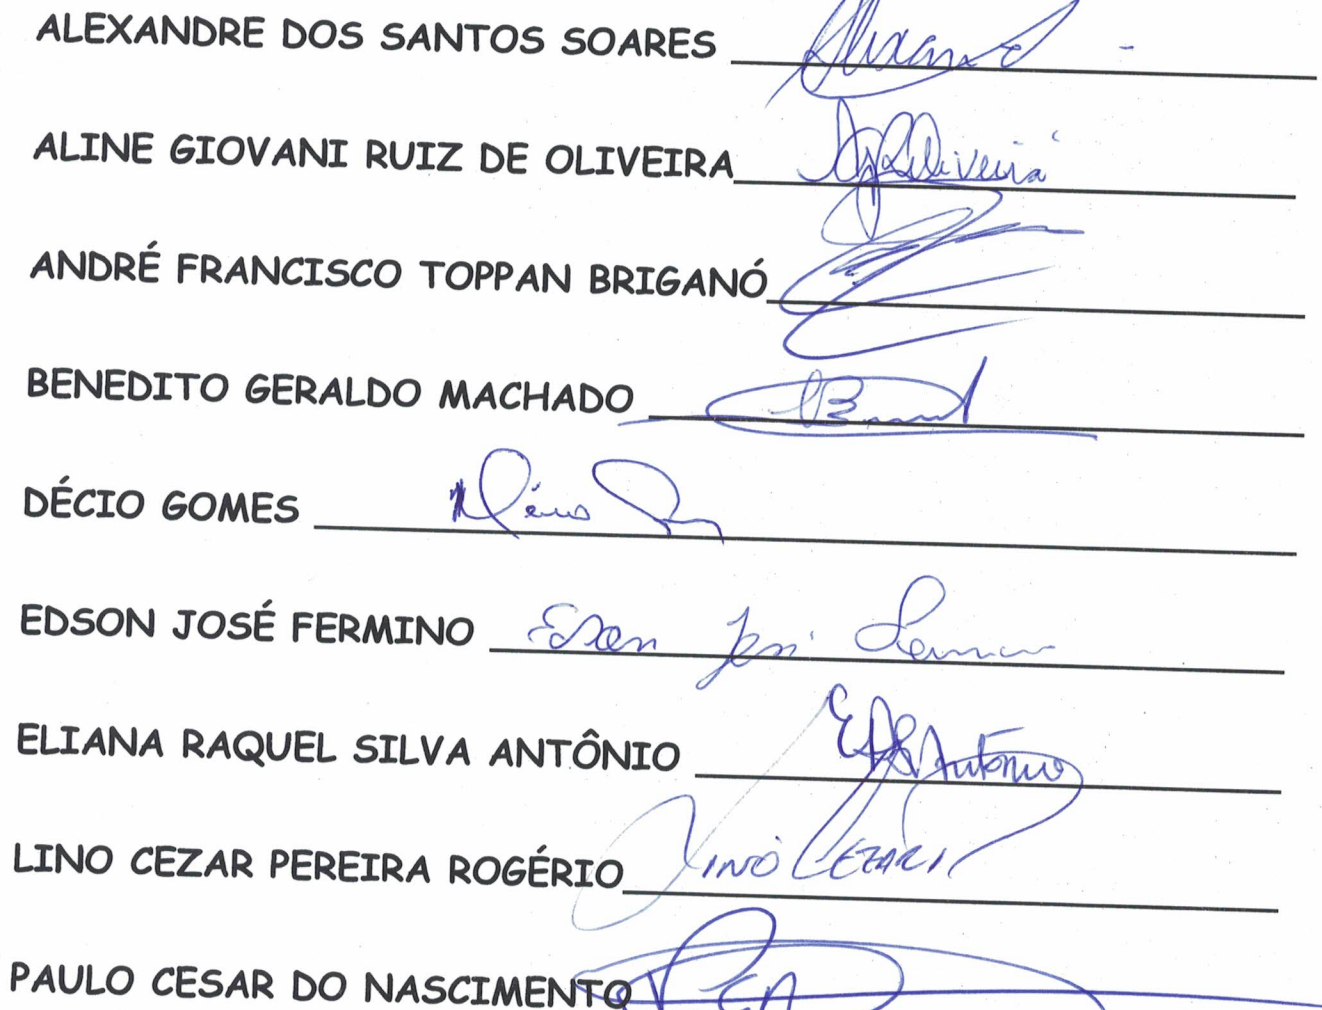 ALEXANDRE DOS SANTOS SOARES
ALINE GIOVANI RUIZ DE OLIVEIRA AGROliveira
ANDRÉ FRANCISCO TOPPAN BRIGANÓ
BENEDITO GERALDO MACHADO
DÉCIO GOMES Décio
EDSON JOSÉ FERMINO Edson José Fermino
ELIANA RAQUEL SILVA ANTÔNIO ERSAntônio
LINO CEZAR PEREIRA ROGÉRIO LINO CEZAR
PAULO CESAR DO NASCIMENTO